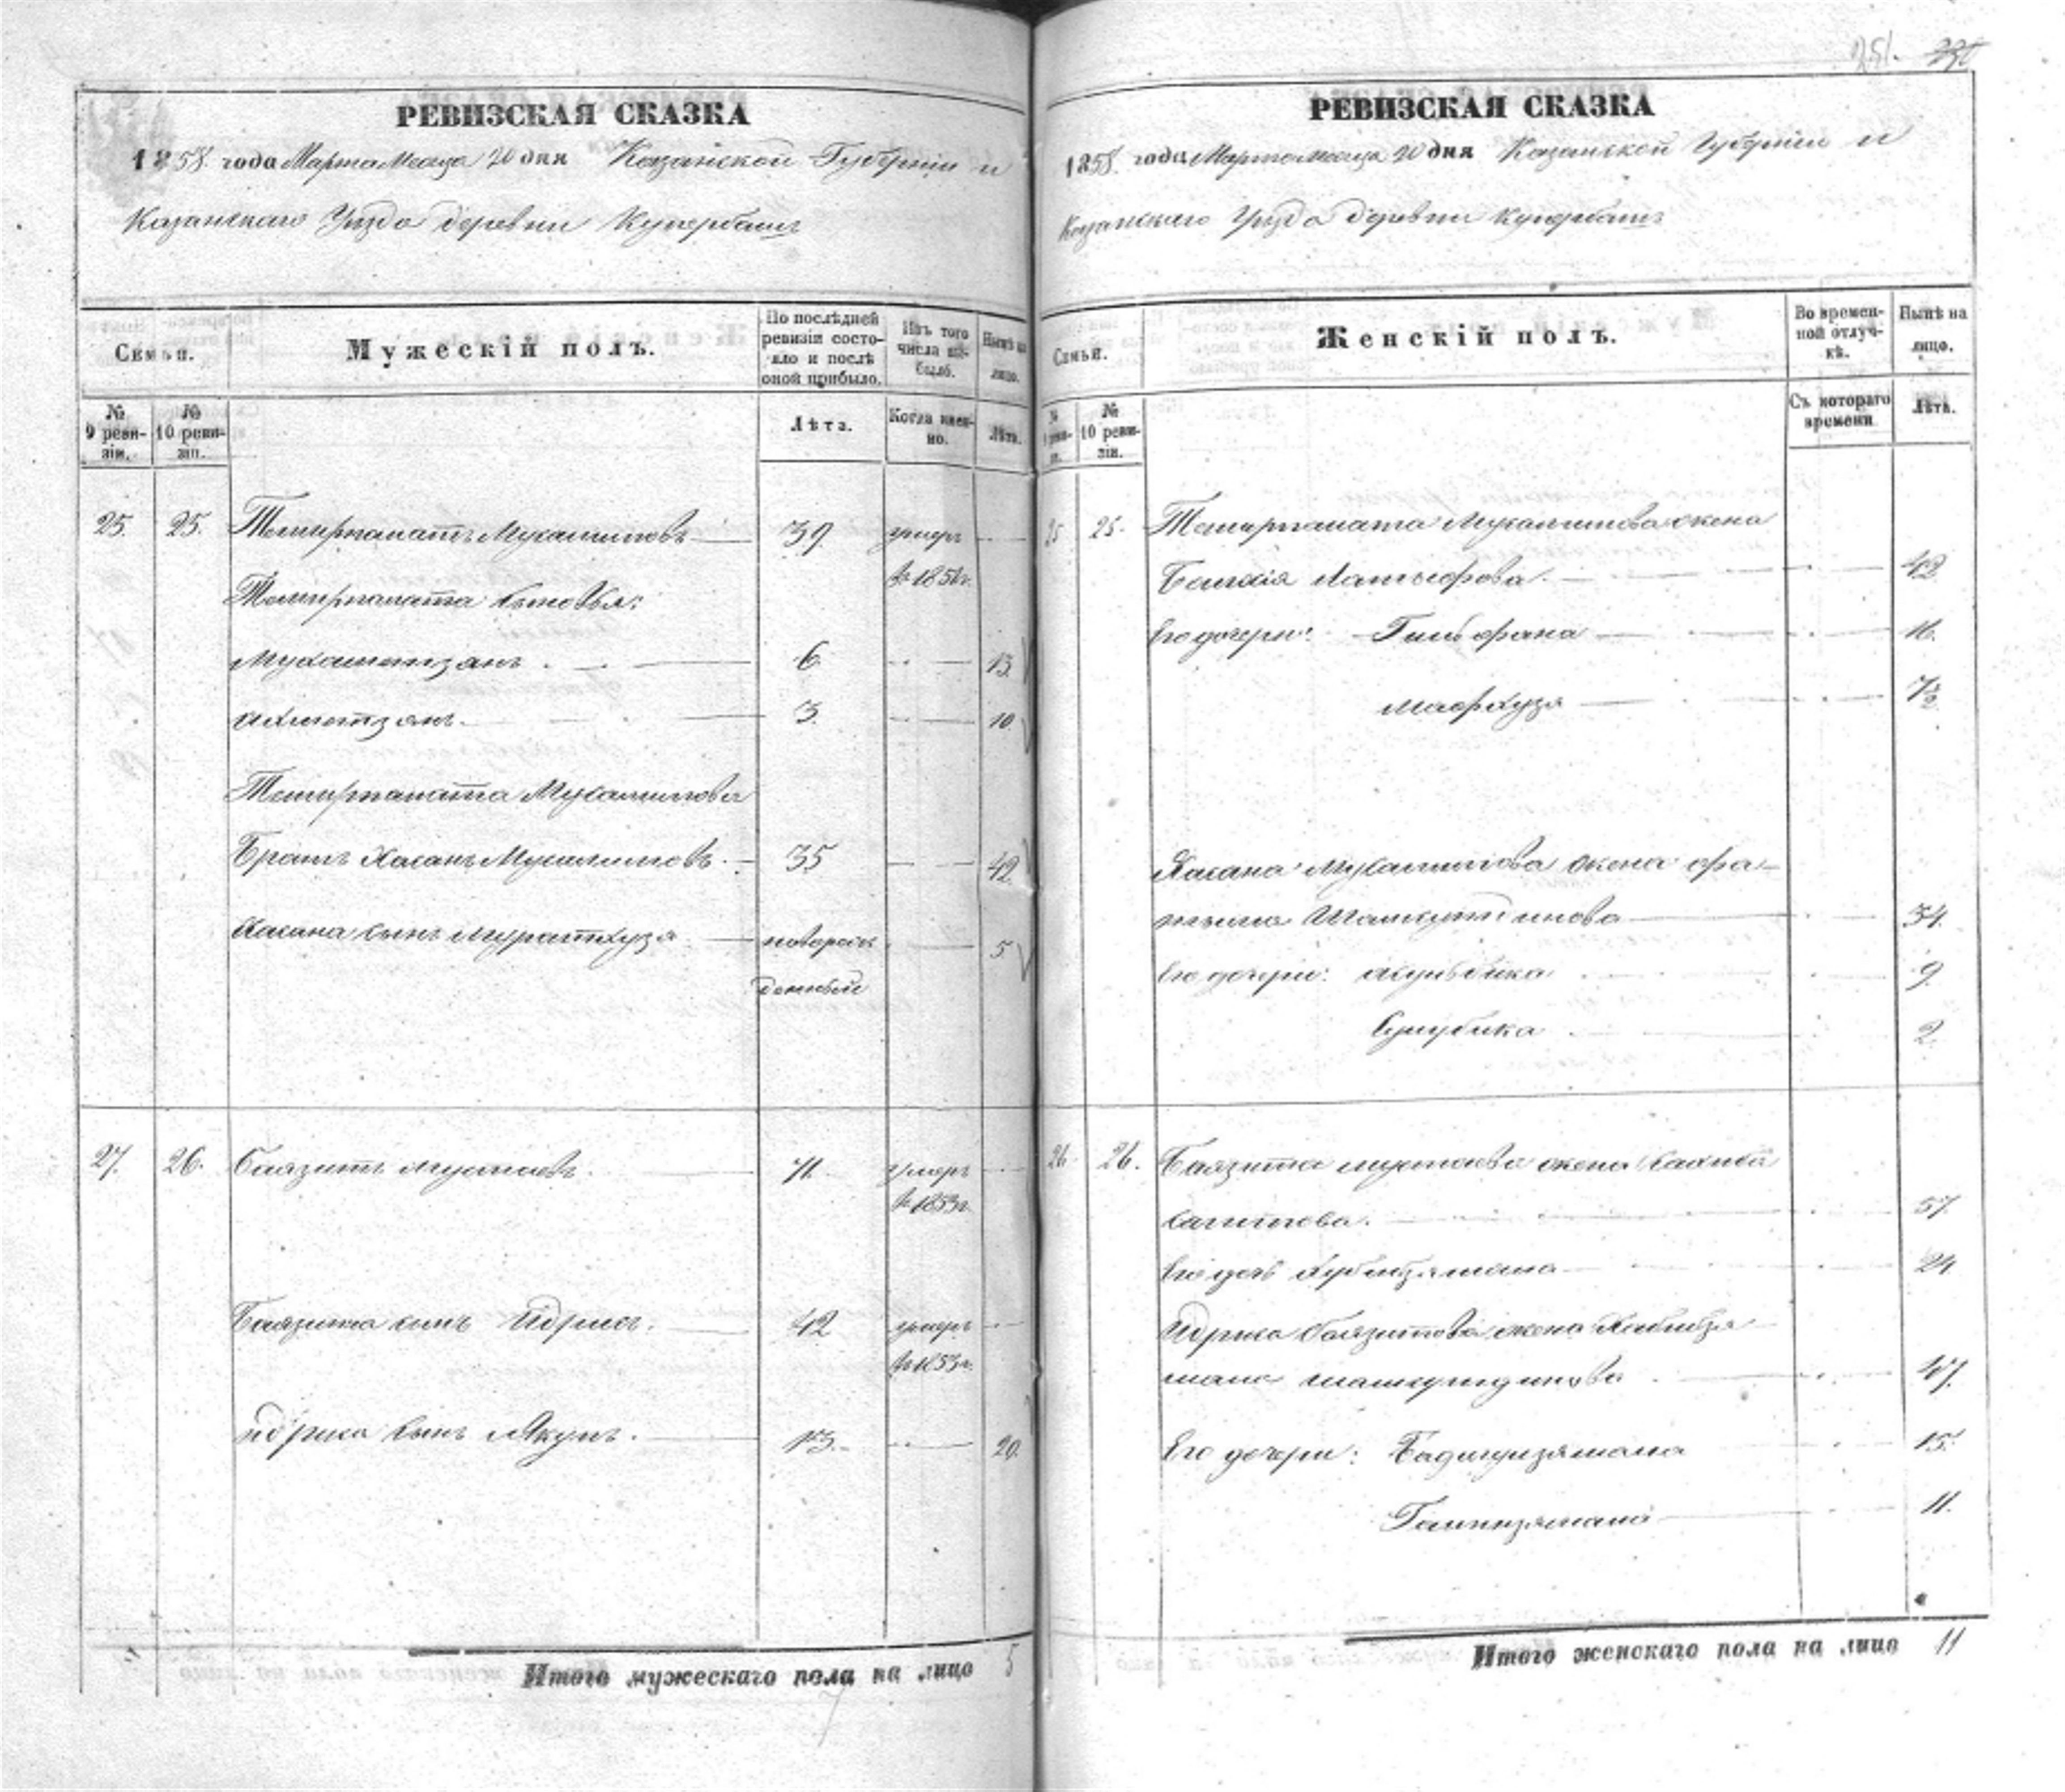 251. 230
РЕВИЗСКАЯ СКАЗКА
1858. года Марта месяца 20 дня Казанской Губерніи и
Казанскаго Уѣзда деревни Кугербашъ
Семьи.
Мужескій полъ.
По послѣдней ревизіи состояло и послѣ оной прибыло.
Изъ того числа выбыло.
Нынѣ на лицо.
№ 9 ревизіи.
№ 10 ревизіи.
Лѣта.
Когда именно.
Лѣта.
25. 25. Темирпашатъ Мукаминовъ 39. умеръ
въ 185 г.
Темирпашата сыновья:
Мухаметзянъ 6. 13
Ахметзянъ 3. 10
Темирпашата Мукаминова
Братъ Хасанъ Мукаминовъ 35 42
Хасана сынъ Муратхузя новорож 5
денный
27. 26. Баязитъ Мустаевъ 71. умеръ
въ 1853г.
Баязита сынъ Идрисъ. 42 умеръ
въ 1853г.
Идриса сынъ Якупъ. 13. 20.
Итого мужескаго пола на лицо 5
РЕВИЗСКАЯ СКАЗКА
1858. года Марта месяца 20 дня Казанской Губерніи и
Казанскаго Уѣзда деревни Кугербашъ
Семьи.
Женскій полъ.
Во временной отлучкѣ.
Нынѣ на лицо.
№ 10 ревизіи.
Съ котораго времени
Лѣта.
25 25. Темирпашата Мукаминова жена
Латыфова. 42
Его дочери: Гильфана 16.
Мафхузя 7½
Хасана Мукаминова жена Фа-
тыма Шамкутдинова 34.
Его дочери: 9.
2.
26. 26. Баязита Мустаева жена
Сагитова. 57.
Его дочь 24
Идриса Баязитова жена Хабибзя
мала Шамкутдинова 47.
Его дочери: Бадигулзямала 15.
11.
Итого женскаго пола на лицо 11